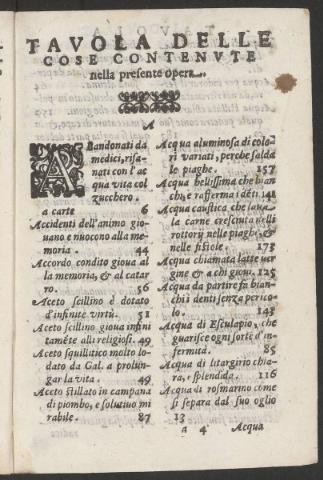 TAVOLA DELLE
COSE CONTENVTE
nella presente opera.
A
ABandonati da
medici, risa-
nati con l'ac
qua vita col
zucchero.
a carte 6
Accidenti dell'animo gio
uano e nuocono alla me
moria. 44
Accordo condito gioua al
la memoria, & al catar
ro. 56
Aceto scillino è dotato
d'infinite virtù. 51
Aceto scillino gioua infini
tamēte alli religiosi. 49
Aceto squillitico molto lo
dato da Gal. a prolun
gar la vita. 49
Aceto stillato in campana
di piombo, e solutiuo mi
rabile. 87
Acqua aluminosa di colo
ri variati, perche salda
le piaghe. 157
Acqua bellissima che bian
chi, e rafferma i dēti. 141
Acqua caustica che laua
la carne cresciuta nelli
rottorij nelle piaghe, &
nelle fistole. 173
Acqua chiamata latte ver
gine & a chi gioui. 125
Acqua da partire fa bian
chi i denti senza perico
lo. 143
Acqua di Esculapio, che
guarisce ogni sorte d'in
fermità. 85
Acqua di litargirio chia-
ra, e splendida. 116
Acqua di rosmarino come
si separa dal suo oglio
13
a 4 Acqua